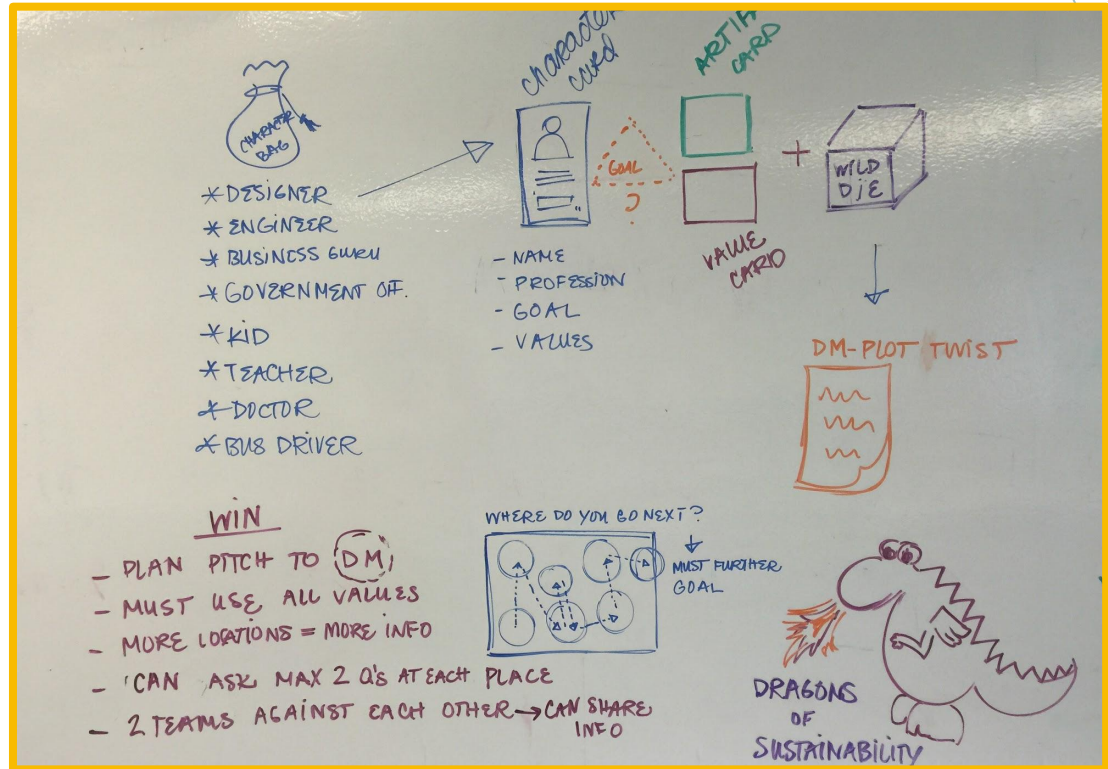 CHARACTER
BAG
* DESIGNER
* ENGINEER
* BUSINESS GURU
* GOVERNMENT OFF.
* KID
* TEACHER
* DOCTOR
* BUS DRIVER
CHARACTER
CARD
GOAL
?
- NAME
- PROFESSION
- GOAL
- VALUES
CARD
VALUE
CARD
+
WILD
DiE
DM-PLOT TWIST
WIN
- PLAN PITCH TO DM
- MUST USE ALL VALUES
- MORE LOCATIONS = MORE INFO
- CAN ASK MAX 2 Q'S AT EACH PLACE
- 2 TEAMS AGAINST EACH OTHER → CAN SHARE
INFO
WHERE DO YOU GO NEXT?
MUST FURTHER
GOAL
DRAGONS
OF
SUSTAINABILITY